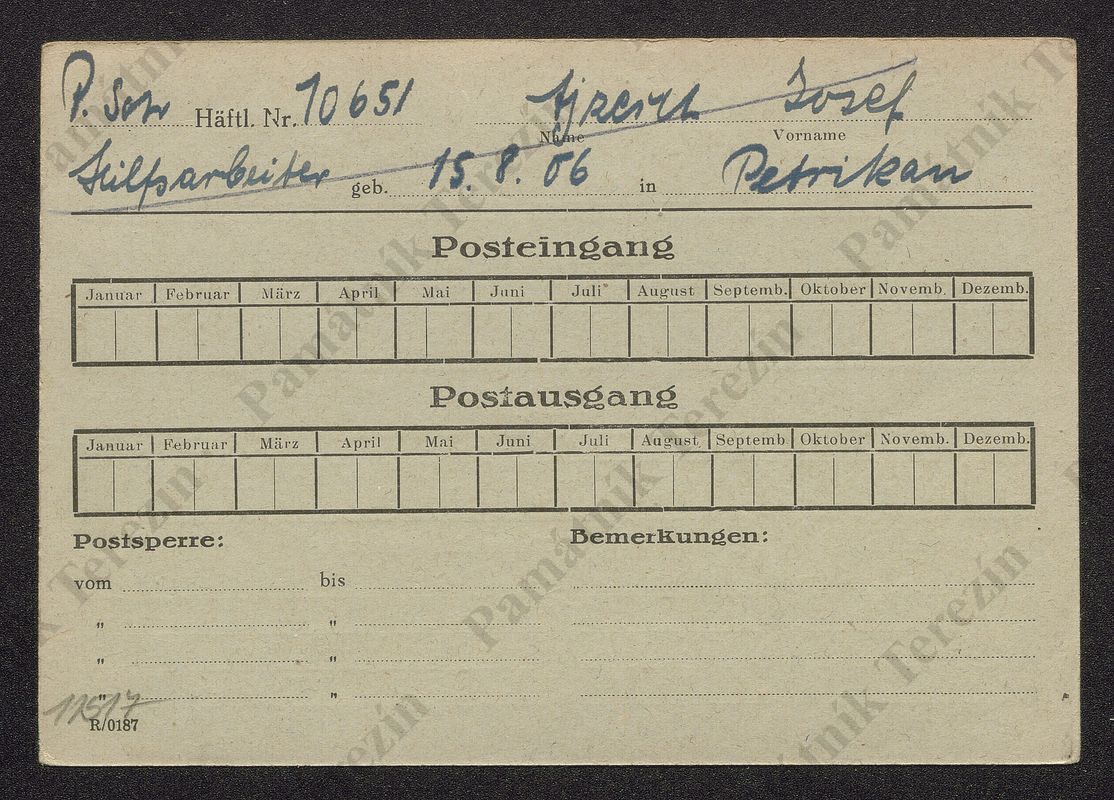 P. Sch Häftl. Nr. 10651 Ajzerich Josef
Name Vorname
Hilfsarbeiter geb. 15. 8. 06 in Petrikau
Posteingang
Januar Februar März April Mai Juni Juli August Septemb. Oktober Novemb. Dezemb.
Postausgang
Januar Februar März April Mai Juni Juli August Septemb. Oktober Novemb. Dezemb.
Postsperre: Bemerkungen:
vom bis
" "
" "
" "
11517
R/0187
Památník Terezín